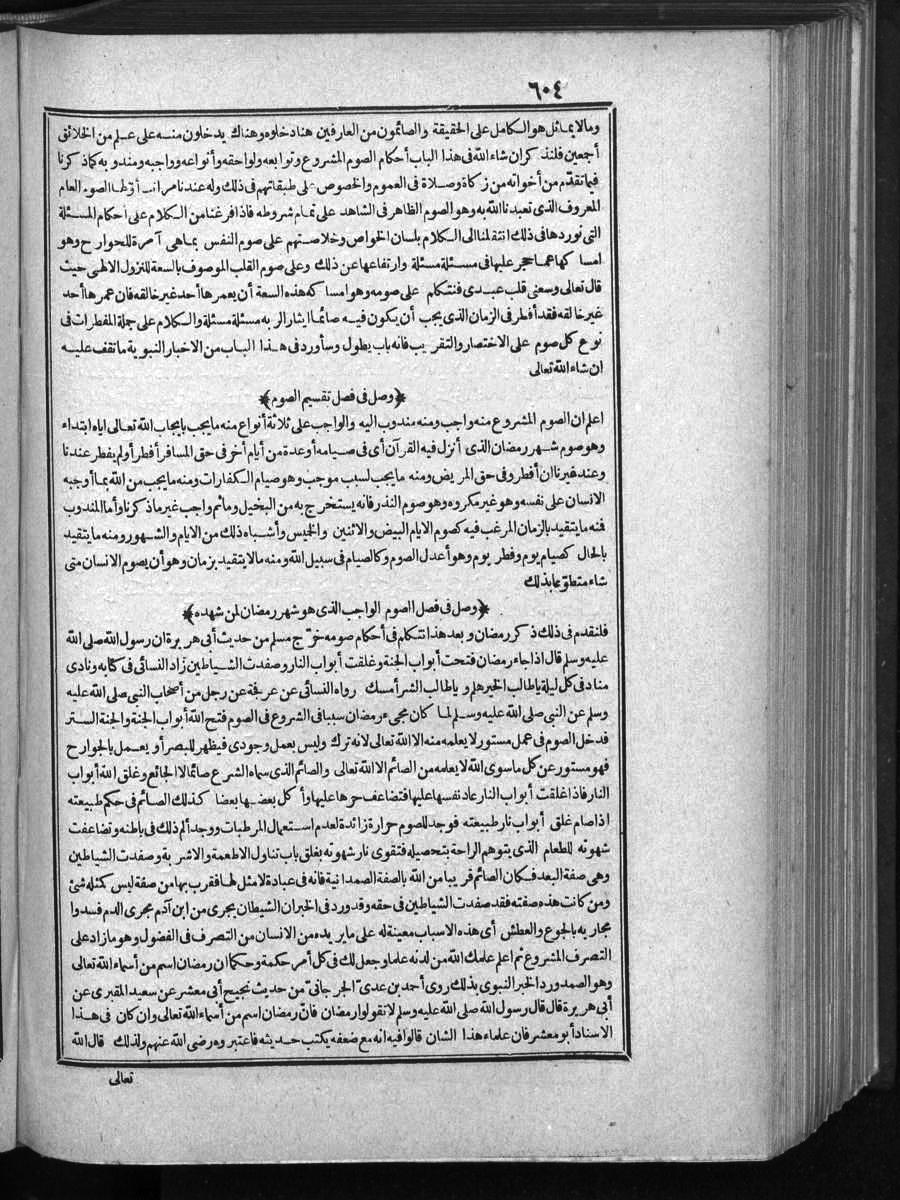 ٦٠٤
وما لا يماثل هو الكامل على الحقيقة والصائمون من العارفين هنا دخلوه وهناك يدخلون منه على علم من الخلائق
أجمعين فلنذكر ان شاء الله فى هذا الباب أحكام الصوم المشروع وتوابعه ولواحقه وأنواعه وواجبه ومندوبه كما ذكرنا
فيما تقدّم من أخواته من زكاة وصلاة فى العموم والخصوص على طبقاتهم فى ذلك وله عندنا مراتب أوّلها الصوم العام
المعروف الذى تعبدنا الله به وهو الصوم الظاهر فى الشاهد على تمام شروطه فاذا فرغنا من الكلام على أحكام المسئلة
التى نوردها فى ذلك انتقلنا الى الكلام بلسان الخواص وخلاصتهم على صوم النفس بما هى آمرة للجوارح وهو
امساكها عما حجر عليها فى مسئلة مسئلة وارتفاعها عن ذلك وعلى صوم القلب الموصوف بالسعة للنزول الالهى حيث
قال تعالى وسعنى قلب عبدى فنتكلم على صومه وهو امساكه هذه السعة أن يعمرها أحد غير خالقه فان عمرها أحد
غير خالقه فقد أفطر فى الزمان الذى يجب أن يكون فيه صائما ايثارا لربه مسئلة مسئلة والكلام على جملة المفطرات فى
نوع كل صوم على الاختصار والتقريب فانه باب يطول وسأورد فى هذا الباب من الاخبار النبوية ما تقف عليه
ان شاء الله تعالى
﴿وصل فى فصل تقسيم الصوم﴾
اعلم ان الصوم المشروع منه واجب ومنه مندوب اليه والواجب على ثلاثة أنواع منه ما يجب بإيجاب الله تعالى اياه ابتداء
وهو صوم شهر رمضان الذى أنزل فيه القرآن أى فى صيامه أو عدة من أيام أخر فى حق المسافر أفطر أو لم يفطر عندنا
وعند غيرنا ان أفطر وفى حق المريض ومنه ما يجب لسبب موجب وهو صيام الكفارات ومنه ما يجب من الله بما أوجبه
الانسان على نفسه وهو غير مكروه وهو صوم النذر فانه يستخرج به من البخيل وما ثم واجب غير ما ذكرنا وأما المندوب
فنه ما يتقيد بالزمان المرغب فيه كصوم الايام البيض والاثنين والخميس وأشباه ذلك من الايام والشهور ومنه ما يتقيد
بالحال كصيام يوم وفطر يوم وهو أعدل الصوم وكالصيام فى سبيل الله ومنه ما لا يتقيد بزمان وهو أن يصوم الانسان متى
شاء متطوّعا بذلك
﴿وصل فى فصل الصوم الواجب الذى هو شهر رمضان لمن شهده﴾
فلنقدم فى ذلك ذكر رمضان وبعد هذا نتكلم فى أحكام صومه خرّج مسلم من حديث أبى هريرة ان رسول الله صلى الله
عليه وسلم قال اذا جاء رمضان فتحت أبواب الجنة وغلقت أبواب النار وصفدت الشياطين زاد النسائى فى كتابه ونادى
مناد فى كل ليلة يا طالب الخير هلم ويا طالب الشر أمسك رواه النسائى عن عرفجة عن رجل من أصحاب النبى صلى الله عليه
وسلم عن النبى صلى الله عليه وسلم لما كان مجىء رمضان سببا فى الشروع فى الصوم فتح الله أبواب الجنة والجنة الستر
فدخل الصوم فى عمل مستور لا يعلمه منه الا الله تعالى لانه ترك وليس بعمل وجودى فيظهر للبصر أو يعمل بالجوارح
فهو مستور عن كل ما سوى الله لا يعلمه من الصائم الا الله تعالى والصائم الذى سماه الشرع صائما لا الجائع وغلق الله أبواب
النار فاذا غلقت أبواب النار عاد نفسها عليها فتضاعف حرها عليها وأكل بعضها بعضا كذلك الصائم فى حكم طبيعته
اذا صام غلق أبواب نار طبيعته فوجد للصوم حرارة زائدة لعدم استعمال المرطبات ووجد ألم ذلك فى باطنه وتضاعفت
شهوته للطعام الذى يتوهم الراحة بتحصيله فتقوى نار شهوته بغلق باب تناول الاطعمة والاشربة وصفدت الشياطين
وهى صفة البعد فكان الصائم قريبا من الله بالصفة الصمدانية فانه فى عبادة لا مثل لها فقرب بها من صفة ليس كمثله شئ
ومن كانت هذه صفته فقد صفدت الشياطين فى حقه وقد ورد فى الخبر ان الشيطان يجرى من ابن آدم مجرى الدم فسدوا
مجاريه بالجوع والعطش أى هذه الاسباب معينة له على ما يريده من الانسان من التصرف فى الفضول وهو ما زاد على
التصرف المشروع ثم اعلم علمك الله من لدنه علما وجعل لك فى كل أمر حكمة وحكما ان رمضان اسم من أسماء الله تعالى
وهو الصمد ورد الخبر النبوى بذلك روى أحمد بن عدىّ الجرجانىّ من حديث نجيح أبى معشر عن سعيد المقبرى عن
أبى هريرة قال قال رسول الله صلى الله عليه وسلم لا تقولوا رمضان فانّ رمضان اسم من أسماء الله تعالى وان كان فى هذا
الاسناد أبو معشر فان علماء هذا الشان قالوا فيه انه مع ضعفه يكتب حديثه فاعتبروه رضى الله عنهم ولذلك قال الله
تعالى